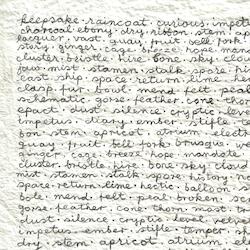 keepsake · raincoat · curious · impet
charcoal · ebony · dry · ribbon · stem · ap
lacquer · vast · quay · fruit · sell · fork
story · ginger · cage · breeze · hope · man
cluster · bristle · hire · bone · sky · clou
jaw · mist · stamen · stalk · spare · hi
cast · ship · space · return · lime · h
clasp · fur · bowl · mend · felt · peal
schematic · gorse · feather · cone · tho
epact · dust · silence · cryptic · level
impetus · diary · ember · stifle · te
bon · stem · apricot · atrium · elect
quay · fruit · sell · fork · brusque · v
ginger · cage · breeze · hope · mandate
cluster · bristle · hire · bone · sky · cloud
mist · stamen · stalk · spare · history · n
space · return · lime · hectic · balloon
bole · mend · felt · peal · broken · sc
gorse · feather · cone · thorn · most · t
dust · silence · cryptic · level · retur
impetus · ember · stifle · temper · n
dry · stem · apricot · atrium · el